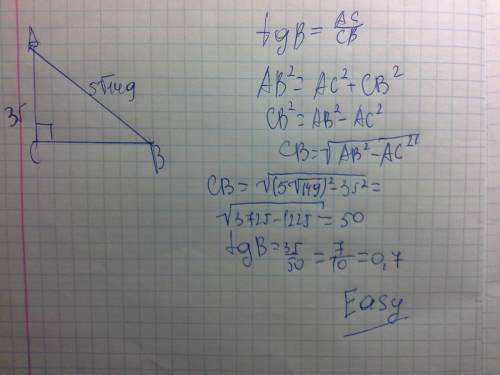 A
5√149
35
C
B
tgB = AC/CB
AB² = AC² + CB²
CB² = AB² - AC²
CB = √AB² - AC²
CB = √(5√149)² - 35² =
√3725 - 1225 = 50
tgB = 35/50 = 7/10 = 0,7
Easy